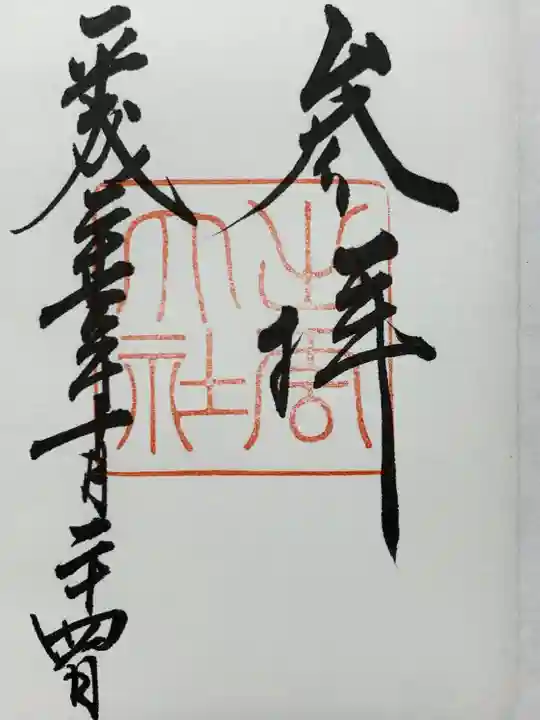 参拝
出雲
大社
平成年十月二十四日